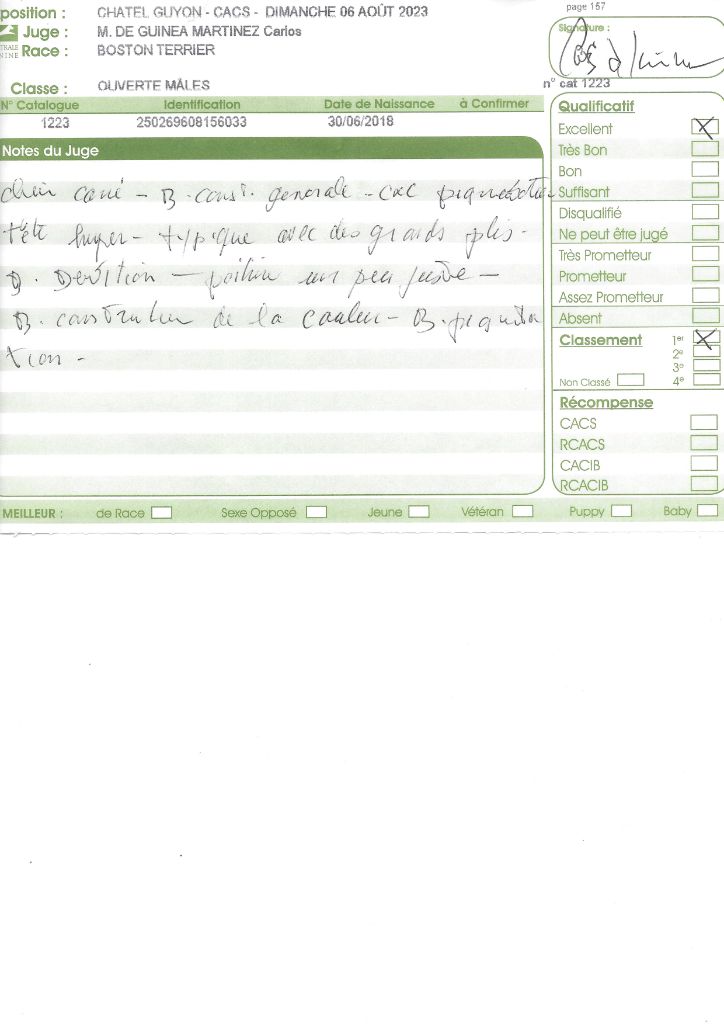 position : CHATEL GUYON - CACS - DIMANCHE 06 AOÛT 2023
page 157
Juge : M. DE GUINEA MARTINEZ Carlos
Signature :
TRALE
NINE
Race : BOSTON TERRIER
Classe : OUVERTE MÂLES
n° cat 1223
N° Catalogue Identification Date de Naissance à Confirmer
1223 250269608156033 30/06/2018
Qualificatif
Excellent X
Très Bon
Bon
Suffisant
Disqualifié
Ne peut être jugé
Très Prometteur
Prometteur
Assez Prometteur
Absent
Classement 1er X
2e
3e
Non Classé 4e
Récompense
CACS
RCACS
CACIB
RCACIB
Notes du Juge
chien carré - B. const. generale -
tête - typique avec des grands plis -
B. Dentition - poitrine un peu juste -
B. construction de la couleur - B. pigmenta
tion -
MEILLEUR : de Race Sexe Opposé Jeune Vétéran Puppy Baby